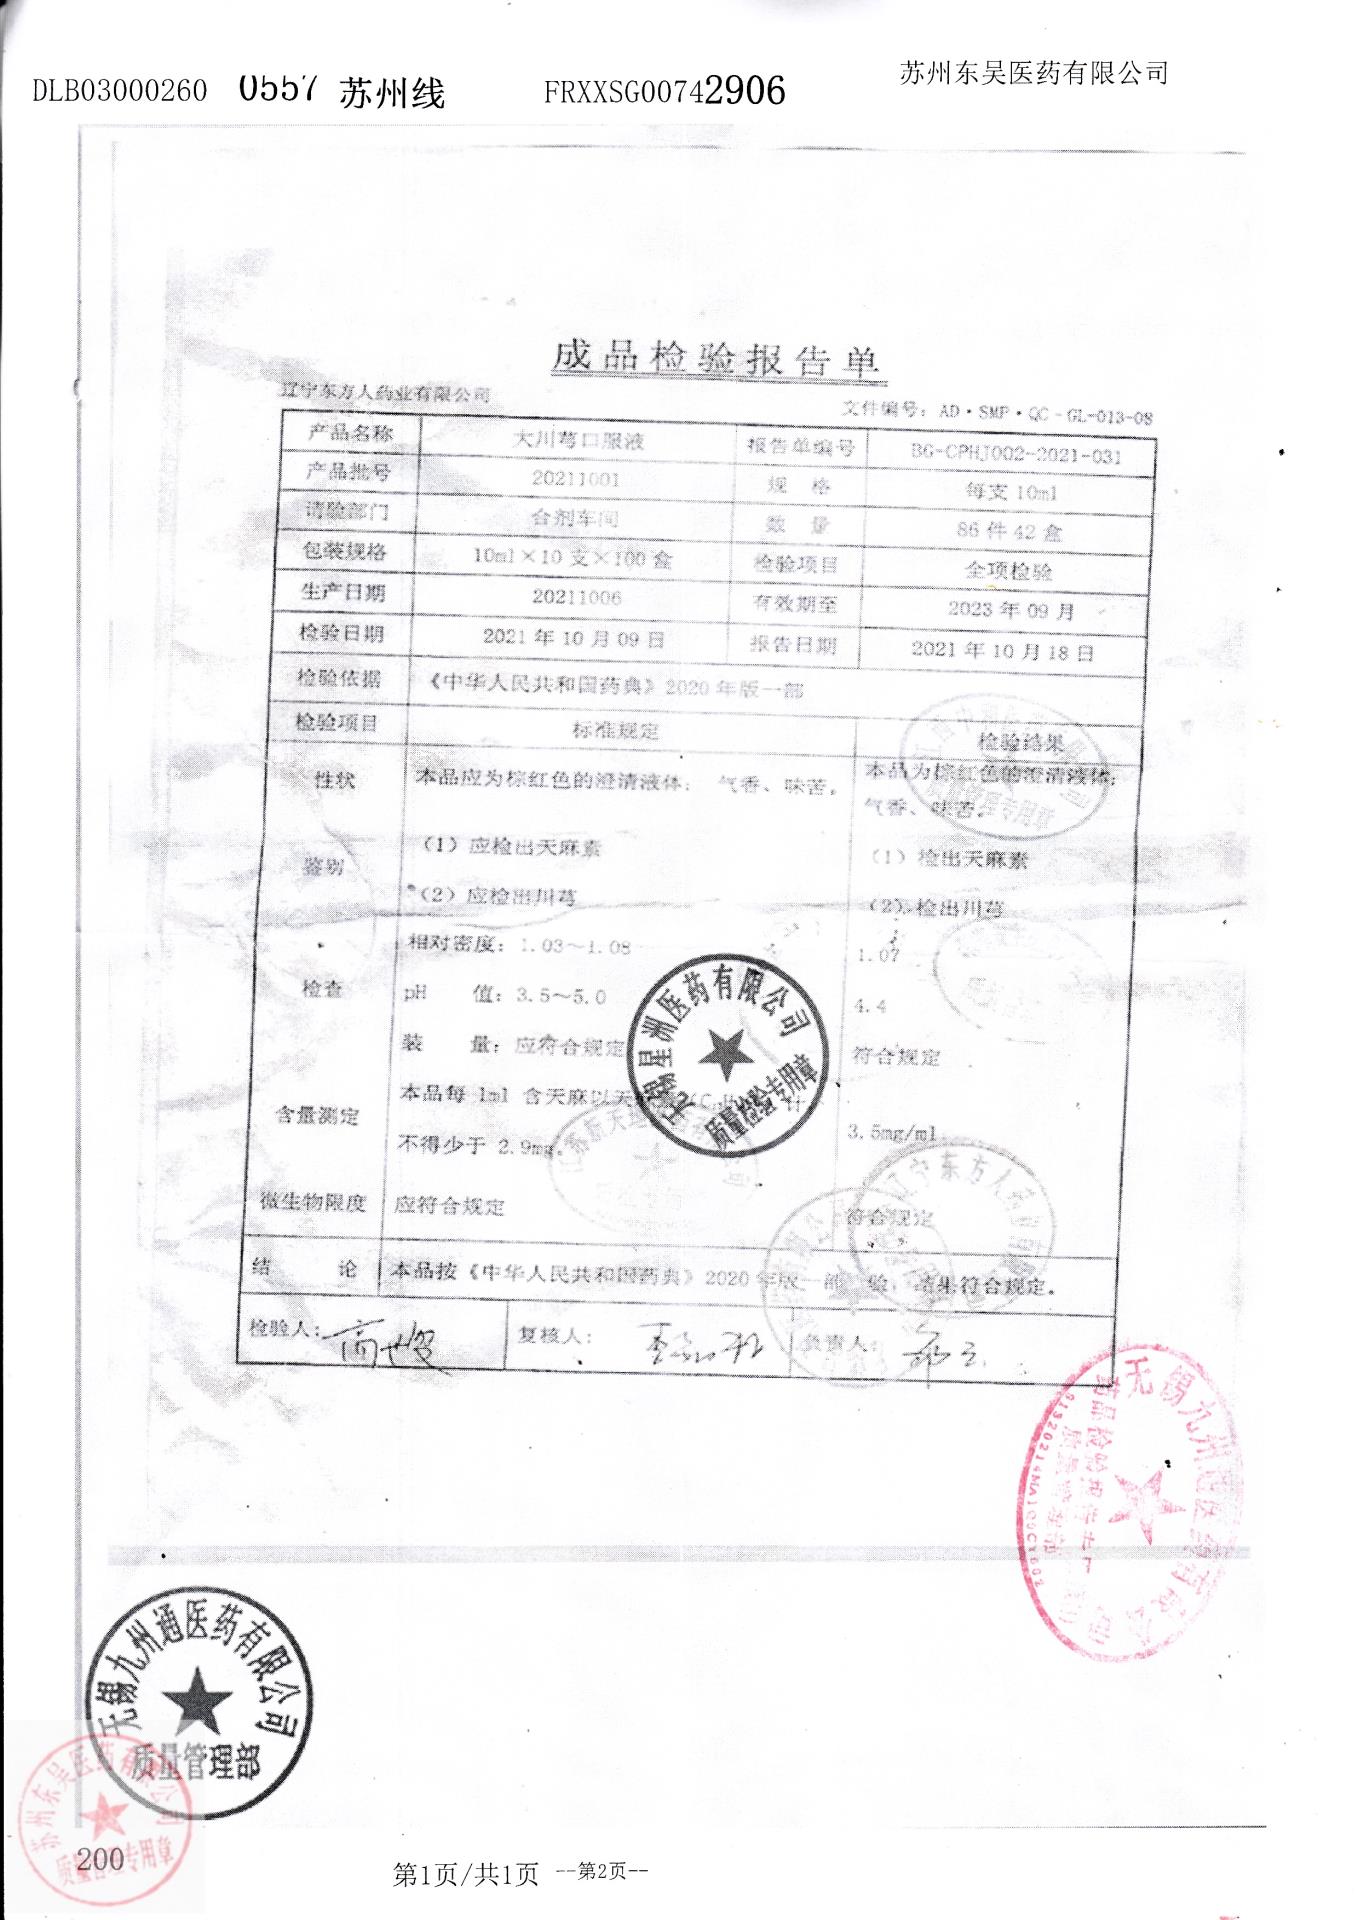 DLB03000260 0557 苏州线 FRXXSG00742906 苏州东吴医药有限公司
成品检验报告单
辽宁东方人药业有限公司 文件编号：AD·SMP·QC-GL-013-08
产品名称 大川芎口服液 报告单编号 BG-CPHJ002-2021-031
产品批号 20211001 规 格 每支10ml
请验部门 合剂车间 数 量 86件42盒
包装规格 10ml×10支×100盒 检验项目 全项检验
生产日期 20211006 有效期至 2023年09月
检验日期 2021年10月09日 报告日期 2021年10月18日
检验依据 《中华人民共和国药典》2020年版一部
检验项目 标准规定 检验结果
性状 本品应为棕红色的澄清液体；气香、味苦。 本品为棕红色的澄清液体；
气香、味苦。
鉴别 （1）应检出天麻素 （1）检出天麻素
（2）应检出川芎 （2）检出川芎
相对密度：1.03～1.08 1.07
检查 pH 值：3.5～5.0 4.4
装 量：应符合规定 符合规定
本品每1ml 含天麻以天 计
含量测定 不得少于 2.9mg。 3.5mg/ml
微生物限度 应符合规定 符合规定
结 论 本品按《中华人民共和国药典》2020年版一部 验，结果符合规定。
检验人： 复核人： 负责人：
无锡星洲医药有限公司
质量检验专用章
无锡九州通医药有限公司
无锡九州通医药有限公司
质量管理部
苏州东吴医药有限公司
质量管理专用章
200
第1页/共1页 --第2页--